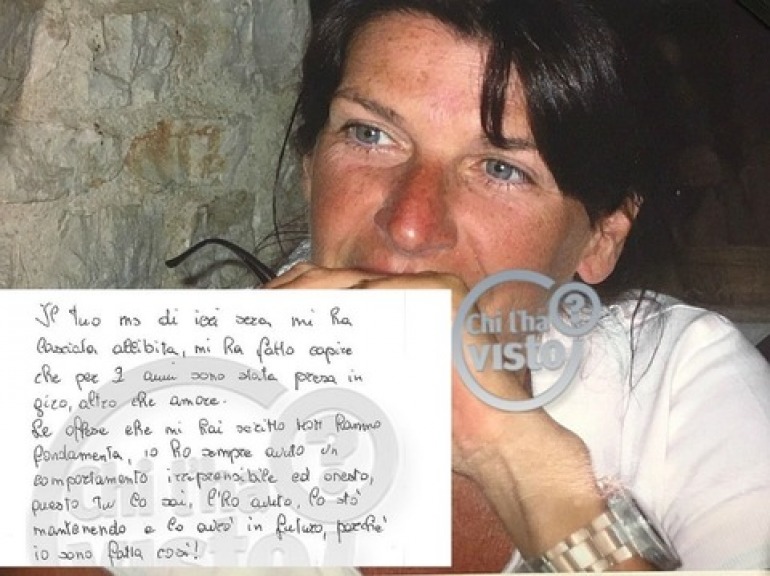 Il tuo ms di ieri sera mi ha
lasciata allibita, mi ha fatto capire
che per 2 anni sono stata presa in
giro, altro che amore.
Le offese che mi hai scritto non hanno
fondamenta, io ho sempre avuto un
comportamento irreprensibile ed onesto,
questo tu lo sai, l'ho avuto, lo sto'
mantenendo e lo avro' in futuro, perche'
io sono fatta cosi!
Chi l'ha
visto?
3
Chi l'ha
visto?
3